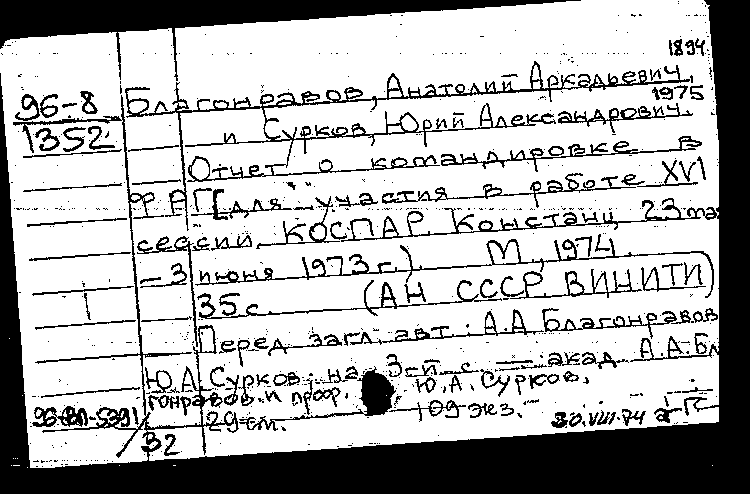 1894
96-8
1352
Благонравов, Анатолий Аркадьевич,
1975
и Сурков, Юрий Александрович.
Отчет о командировке в
ФРГ [для участия в работе XVI
сессии КОСПАР. Констанц, 23 мая
– 3 июня 1973 г.). М., 1974.
35 с. (АН СССР. ВИНИТИ)
Перед загл. авт.: А.А Благонравов
Ю.А. Сурков; на 3-й с. — акад А.А. Бл
гонравов и проф. Ю.А. Сурков.
29 см. 109 экз.
96-ВП-5391
/32
30.VIII.74